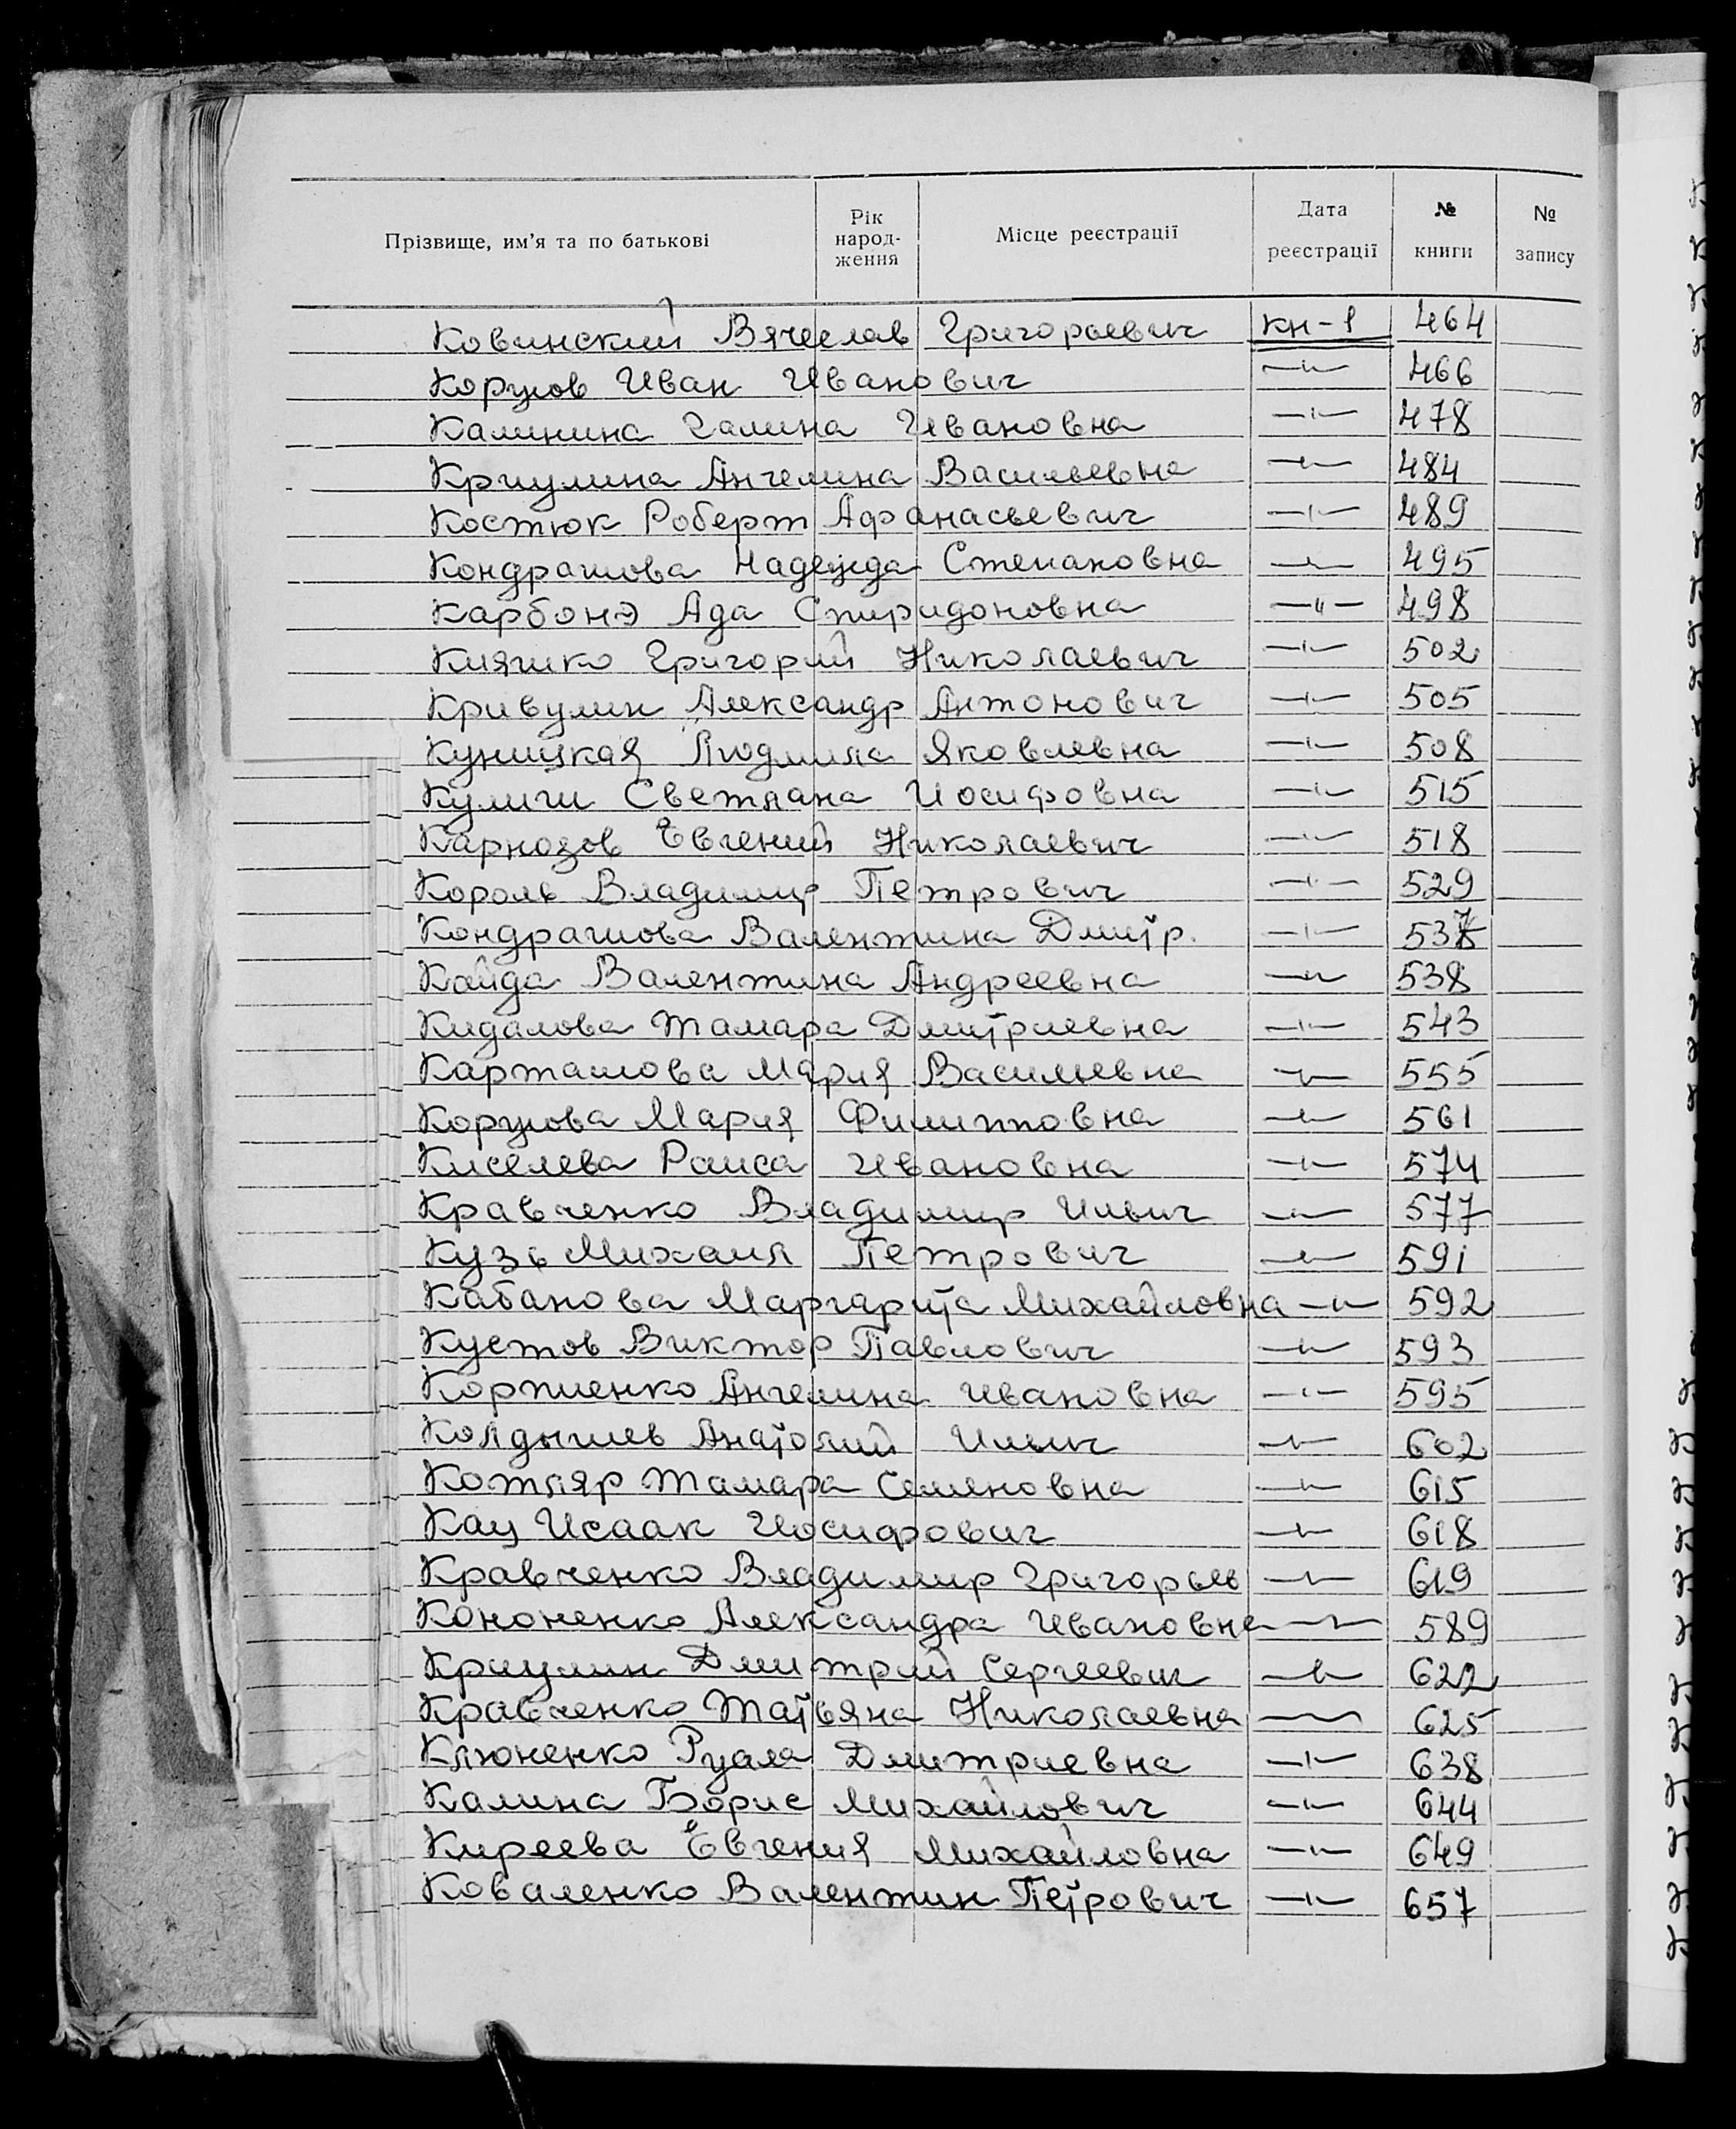 Прізвище, им'я та по батькові | Рік народження | Місце реєстрації | Дата реєстрації | № книги | № запису
Ковинский Вячеслав Григорьевич кн-1 464
Корунов Иван Иванович —"— 466
Калинина Галина Ивановна —"— 478
Криулина Ангелина Васильевна —"— 484
Костюк Роберт Афанасьевич —"— 489
Кондрашова Надежда Степановна —"— 495
Карбонэ Ада Спиридоновна —"— 498
Княшко Григорий Николаевич —"— 502
Кривулин Александр Антонович —"— 505
Куницкая Людмила Яковлевна —"— 508
Кулиш Светлана Иосифовна —"— 515
Карнозов Евгений Николаевич —"— 518
Король Владимир Петрович —"— 529
Кондрашова Валентина Дмитр. —"— 537
Кайда Валентина Андреевна —"— 538
Кидалова Тамара Дмитриевна —"— 543
Карташова Мария Васильевна —"— 555
Корунова Мария Филипповна —"— 561
Киселева Раиса Ивановна —"— 574
Кравченко Владимир Ильич —"— 577
Кузь Михаил Петрович —"— 591
Кабанова Маргарита Михайловна —"— 592
Кустов Виктор Павлович —"— 593
Корниенко Ангелина Ивановна —"— 595
Колдышев Анатолий Ильич —"— 602
Котляр Тамара Семеновна —"— 615
Кац Исаак Иосифович —"— 618
Кравченко Владимир Григорьев —"— 619
Кононенко Александра Ивановна —"— 589
Криулин Дмитрий Сергеевич —"— 622
Кравченко Татьяна Николаевна —"— 625
Клюненко Дмитриевна —"— 638
Калина Борис Михайлович —"— 644
Киреева Евгения Михайловна —"— 649
Коваленко Валентин Петрович —"— 657